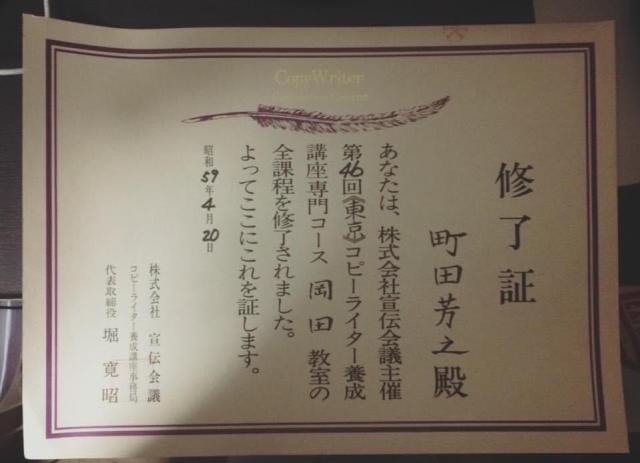 CopyWriter
修了証
町田芳之殿
あなたは、株式会社宣伝会議主催
第46回《東京》コピーライター養成
講座専門コース 岡田 教室の
全課程を修了されました。
よってここにこれを証します。
昭和59年4月20日
株式会社 宣伝会議
コピーライター養成講座事務局
代表取締役 堀 寛昭